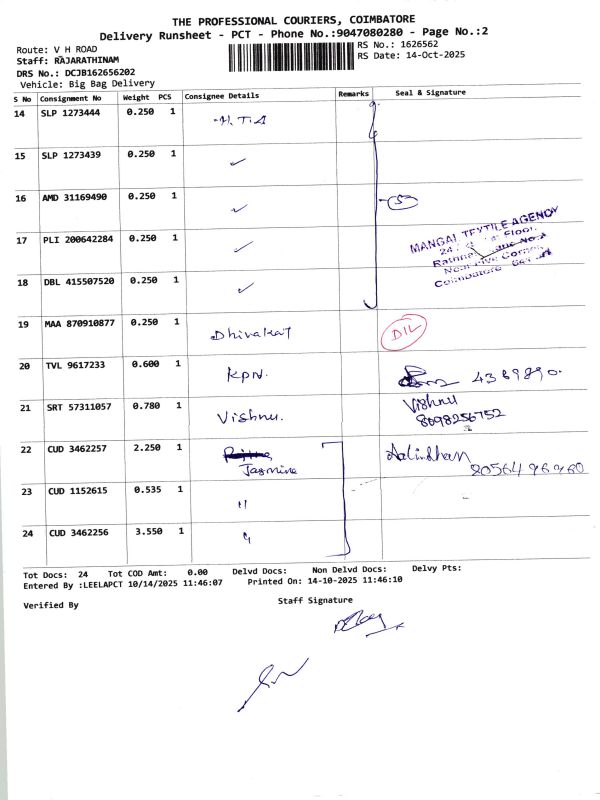 THE PROFESSIONAL COURIERS, COIMBATORE
Delivery Runsheet - PCT - Phone No.:9047080280 - Page No.:2
Route: V H ROAD
RS No.: 1626562
Staff: RAJARATHINAM
RS Date: 14-Oct-2025
DRS No.: DCJB162656202
Vehicle: Big Bag Delivery
S No Consignment No Weight PCS Consignee Details Remarks Seal & Signature
14 SLP 1273444 0.250 1 H.T.A
15 SLP 1273439 0.250 1 ✓
16 AMD 31169490 0.250 1 ✓ 5
17 PLI 200642284 0.250 1 ✓
MANGAL TEXTILE AGENCY
Floor,
Coimbatore
18 DBL 415507520 0.250 1 ✓
19 MAA 870910877 0.250 1 Dhivakar DIL
20 TVL 9617233 0.600 1 KPN. 4369890.
21 SRT 57311057 0.780 1 Vishnu. Vishnu
8098256752
22 CUD 3462257 2.250 1 Jasmine
23 CUD 1152615 0.535 1 "
24 CUD 3462256 3.550 1 "
Tot Docs: 24 Tot COD Amt: 0.00 Delvd Docs: Non Delvd Docs: Delvy Pts:
Entered By :LEELAPCT 10/14/2025 11:46:07 Printed On: 14-10-2025 11:46:10
Verified By Staff Signature